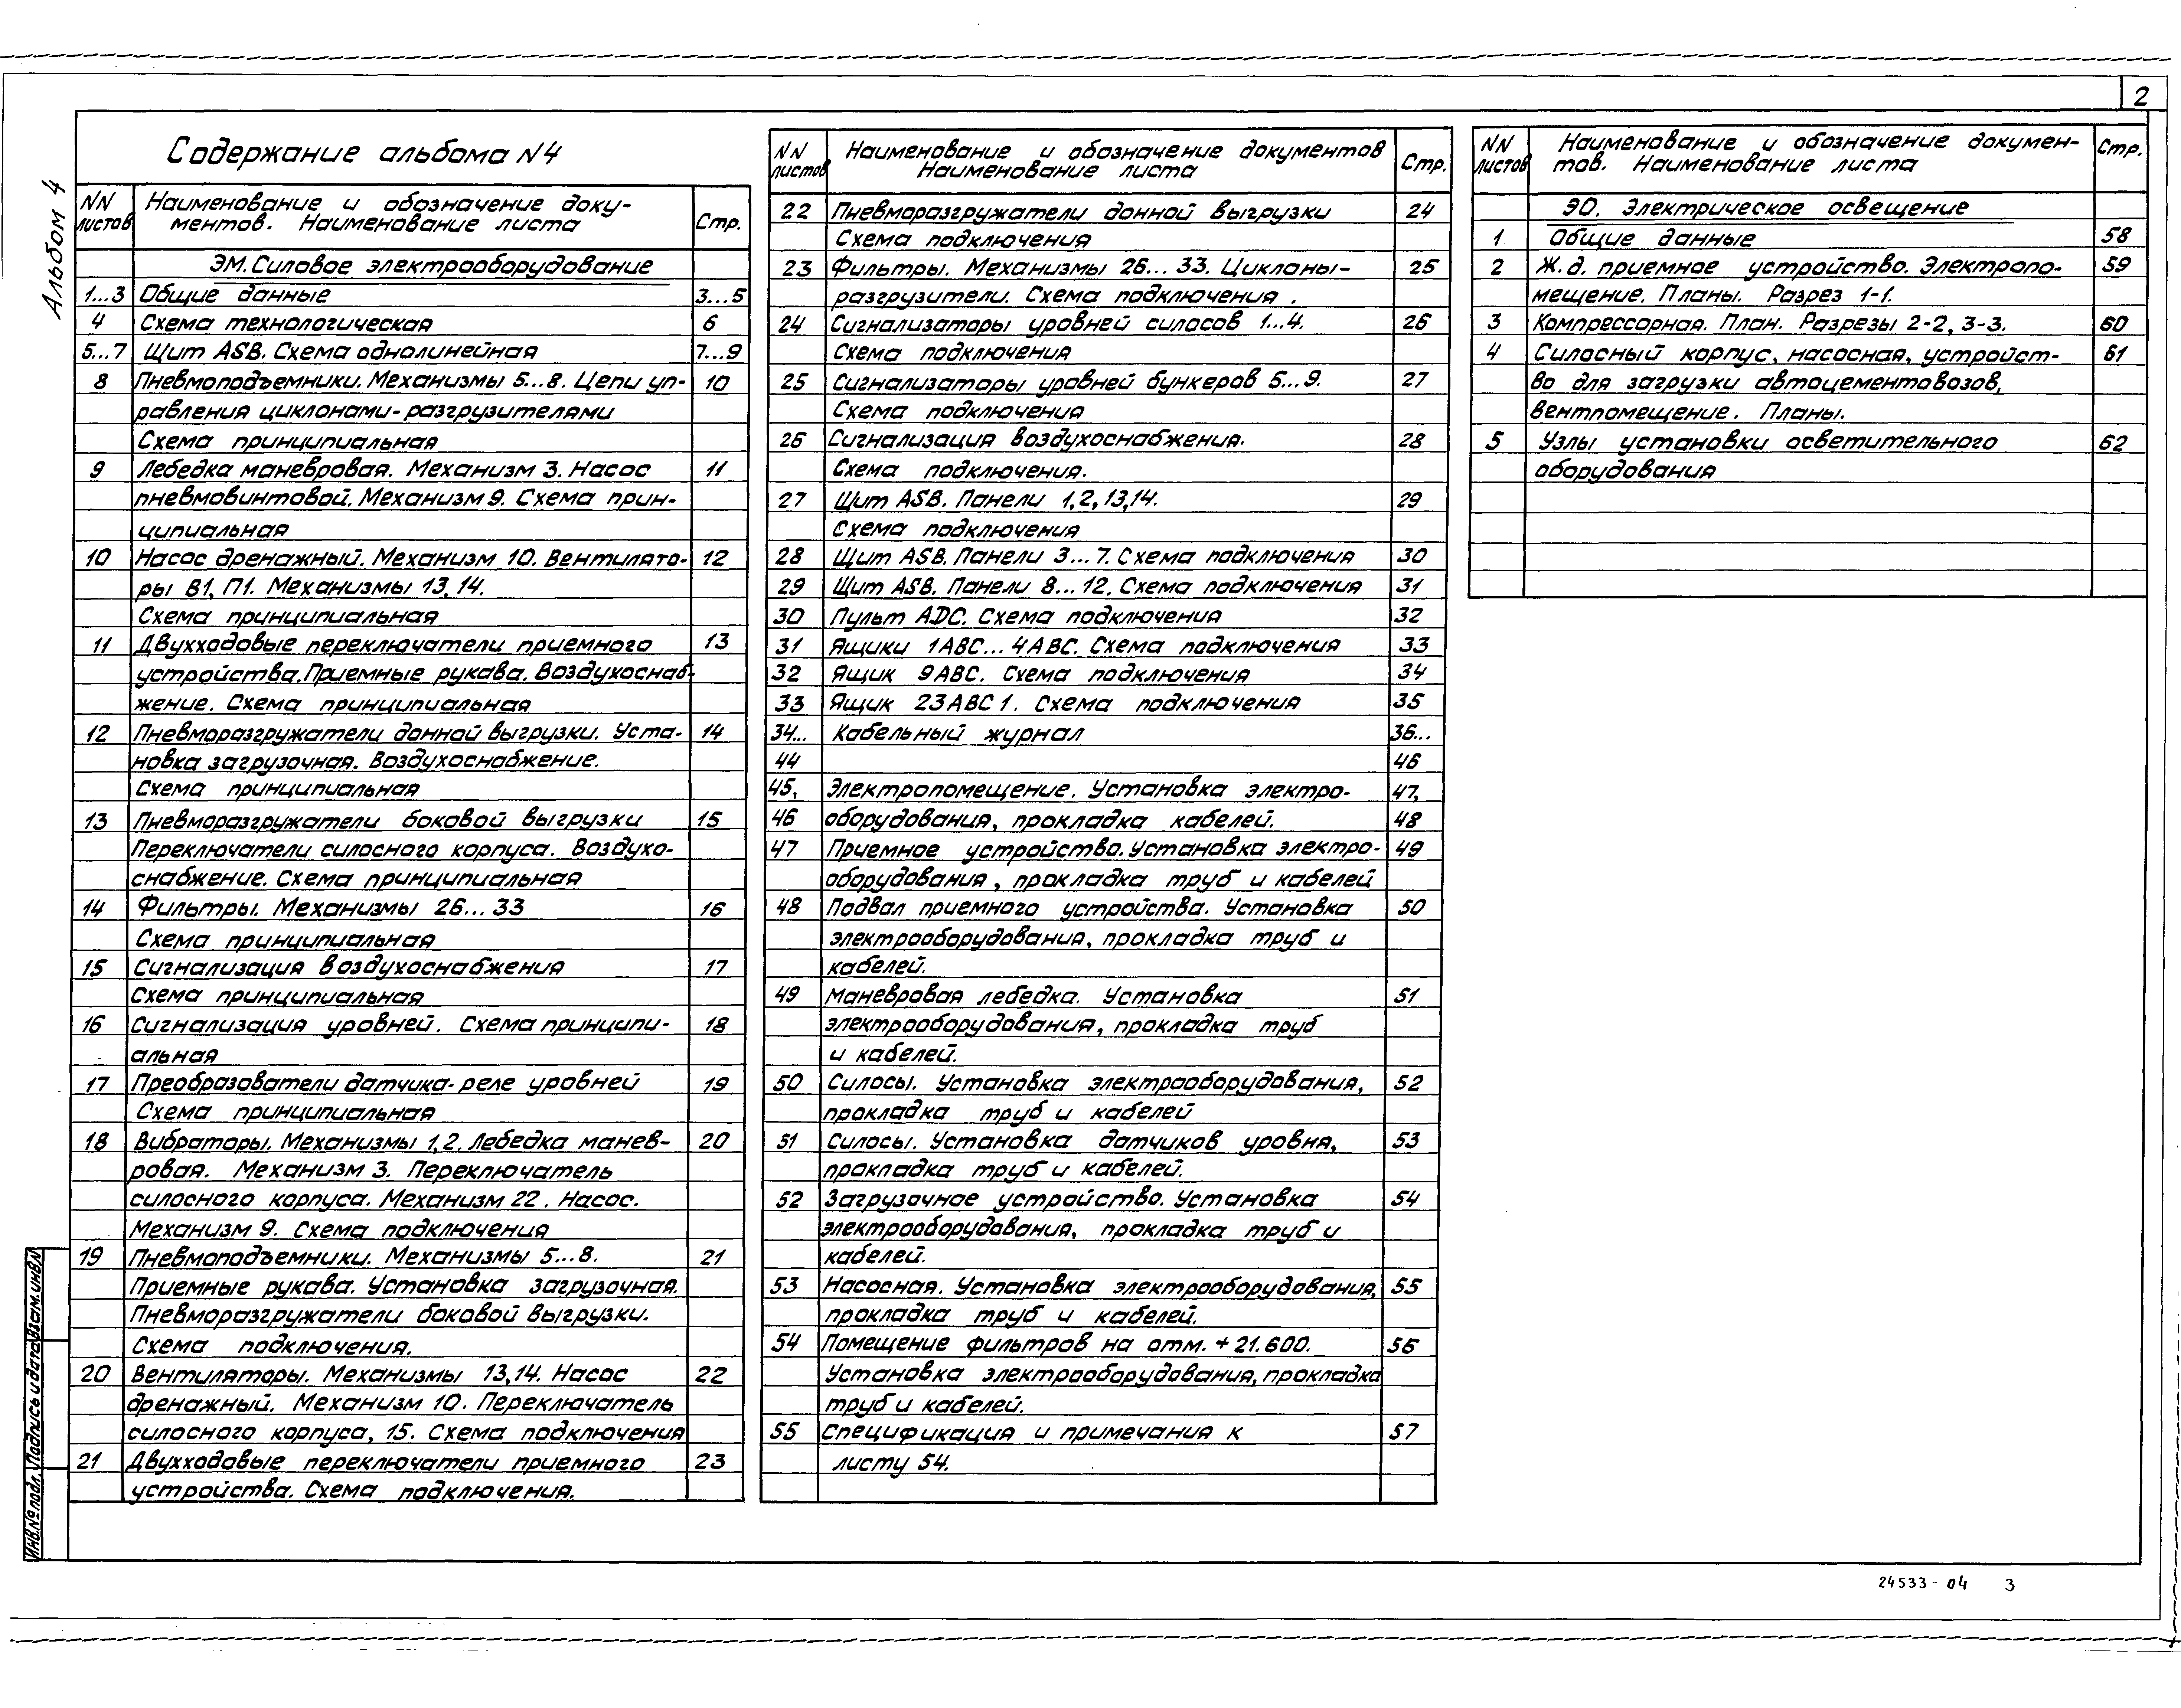 2
Альбом 4
Содержание альбома N4
NN листов
Наименование и обозначение доку-
ментов. Наименование листа
Стр.
ЭМ. Силовое электрооборудование
1...3 Общие данные 3...5
4 Схема технологическая 6
5...7 Щит ASB. Схема однолинейная 7...9
8 Пневмоподъемники. Механизмы 5...8. Цепи уп- 10
равления циклонами-разгрузителями
Схема принципиальная
9 Лебедка маневровая. Механизм 3. Насос 11
пневмовинтовой. Механизм 9. Схема прин-
ципиальная
10 Насос дренажный. Механизм 10. Вентилято- 12
ры В1, П1. Механизмы 13, 14.
Схема принципиальная
11 Двухходовые переключатели приемного 13
устройства. Приемные рукава. Воздухоснаб-
жение. Схема принципиальная
12 Пневморазгружатели донной выгрузки. Уста- 14
новка загрузочная. Воздухоснабжение.
Схема принципиальная
13 Пневморазгружатели боковой выгрузки 15
Переключатели силосного корпуса. Воздухо-
снабжение. Схема принципиальная
14 Фильтры. Механизмы 26...33 16
Схема принципиальная
15 Сигнализация воздухоснабжения 17
Схема принципиальная
16 Сигнализация уровней. Схема принципи- 18
альная
17 Преобразователи датчика-реле уровней 19
Схема принципиальная
18 Вибраторы. Механизмы 1, 2. Лебедка манев- 20
ровая. Механизм 3. Переключатель
силосного корпуса. Механизм 22. Насос.
Механизм 9. Схема подключения
19 Пневмоподъемники. Механизмы 5...8. 21
Приемные рукава. Установка загрузочная.
Пневморазгружатели боковой выгрузки.
Схема подключения.
20 Вентиляторы. Механизмы 13,14. Насос 22
дренажный. Механизм 10. Переключатель
силосного корпуса, 15. Схема подключения
21 Двухходовые переключатели приемного 23
устройства. Схема подключения.
NN листов
Наименование и обозначение документов
Наименование листа
Стр.
22 Пневморазгружатели донной выгрузки 24
Схема подключения
23 Фильтры. Механизмы 26...33. Циклоны- 25
разгрузители. Схема подключения.
24 Сигнализаторы уровней силосов 1...4. 26
Схема подключения
25 Сигнализаторы уровней бункеров 5...9. 27
Схема подключения
26 Сигнализация воздухоснабжения. 28
Схема подключения.
27 Щит ASB. Панели 1,2,13,14. 29
Схема подключения
28 Щит ASB. Панели 3...7. Схема подключения 30
29 Щит ASB. Панели 8...12. Схема подключения 31
30 Пульт ADC. Схема подключения 32
31 Ящики 1АВС...4АВС. Схема подключения 33
32 Ящик 9АВС. Схема подключения 34
33 Ящик 23АВС1. Схема подключения 35
34... Кабельный журнал 36...
44 46
45, Электропомещение. Установка электро- 47,
46 оборудования, прокладка кабелей. 48
47 Приемное устройство. Установка электро- 49
оборудования, прокладка труб и кабелей
48 Подвал приемного устройства. Установка 50
электрооборудования, прокладка труб и
кабелей.
49 Маневровая лебедка. Установка 51
электрооборудования, прокладка труб
и кабелей.
50 Силосы. Установка электрооборудования, 52
прокладка труб и кабелей
51 Силосы. Установка датчиков уровня, 53
прокладка труб и кабелей.
52 Загрузочное устройство. Установка 54
электрооборудования, прокладка труб и
кабелей.
53 Насосная. Установка электрооборудования, 55
прокладка труб и кабелей.
54 Помещение фильтров на отм. +21.600. 56
Установка электрооборудования, прокладка
труб и кабелей.
55 Спецификация и примечания к 57
листу 54.
NN листов
Наименование и обозначение докумен-
тов. Наименование листа
Стр.
ЭО. Электрическое освещение
1 Общие данные 58
2 Ж.д. приемное устройство. Электропо- 59
мещение. Планы. Разрез 1-1.
3 Компрессорная. План. Разрезы 2-2, 3-3. 60
4 Силосный корпус, насосная, устройст- 61
во для загрузки автоцементовозов,
вентпомещение. Планы.
5 Узлы установки осветительного 62
оборудования
Инв.№подл. Подпись и дата Взам.инв.N
24533-04 3